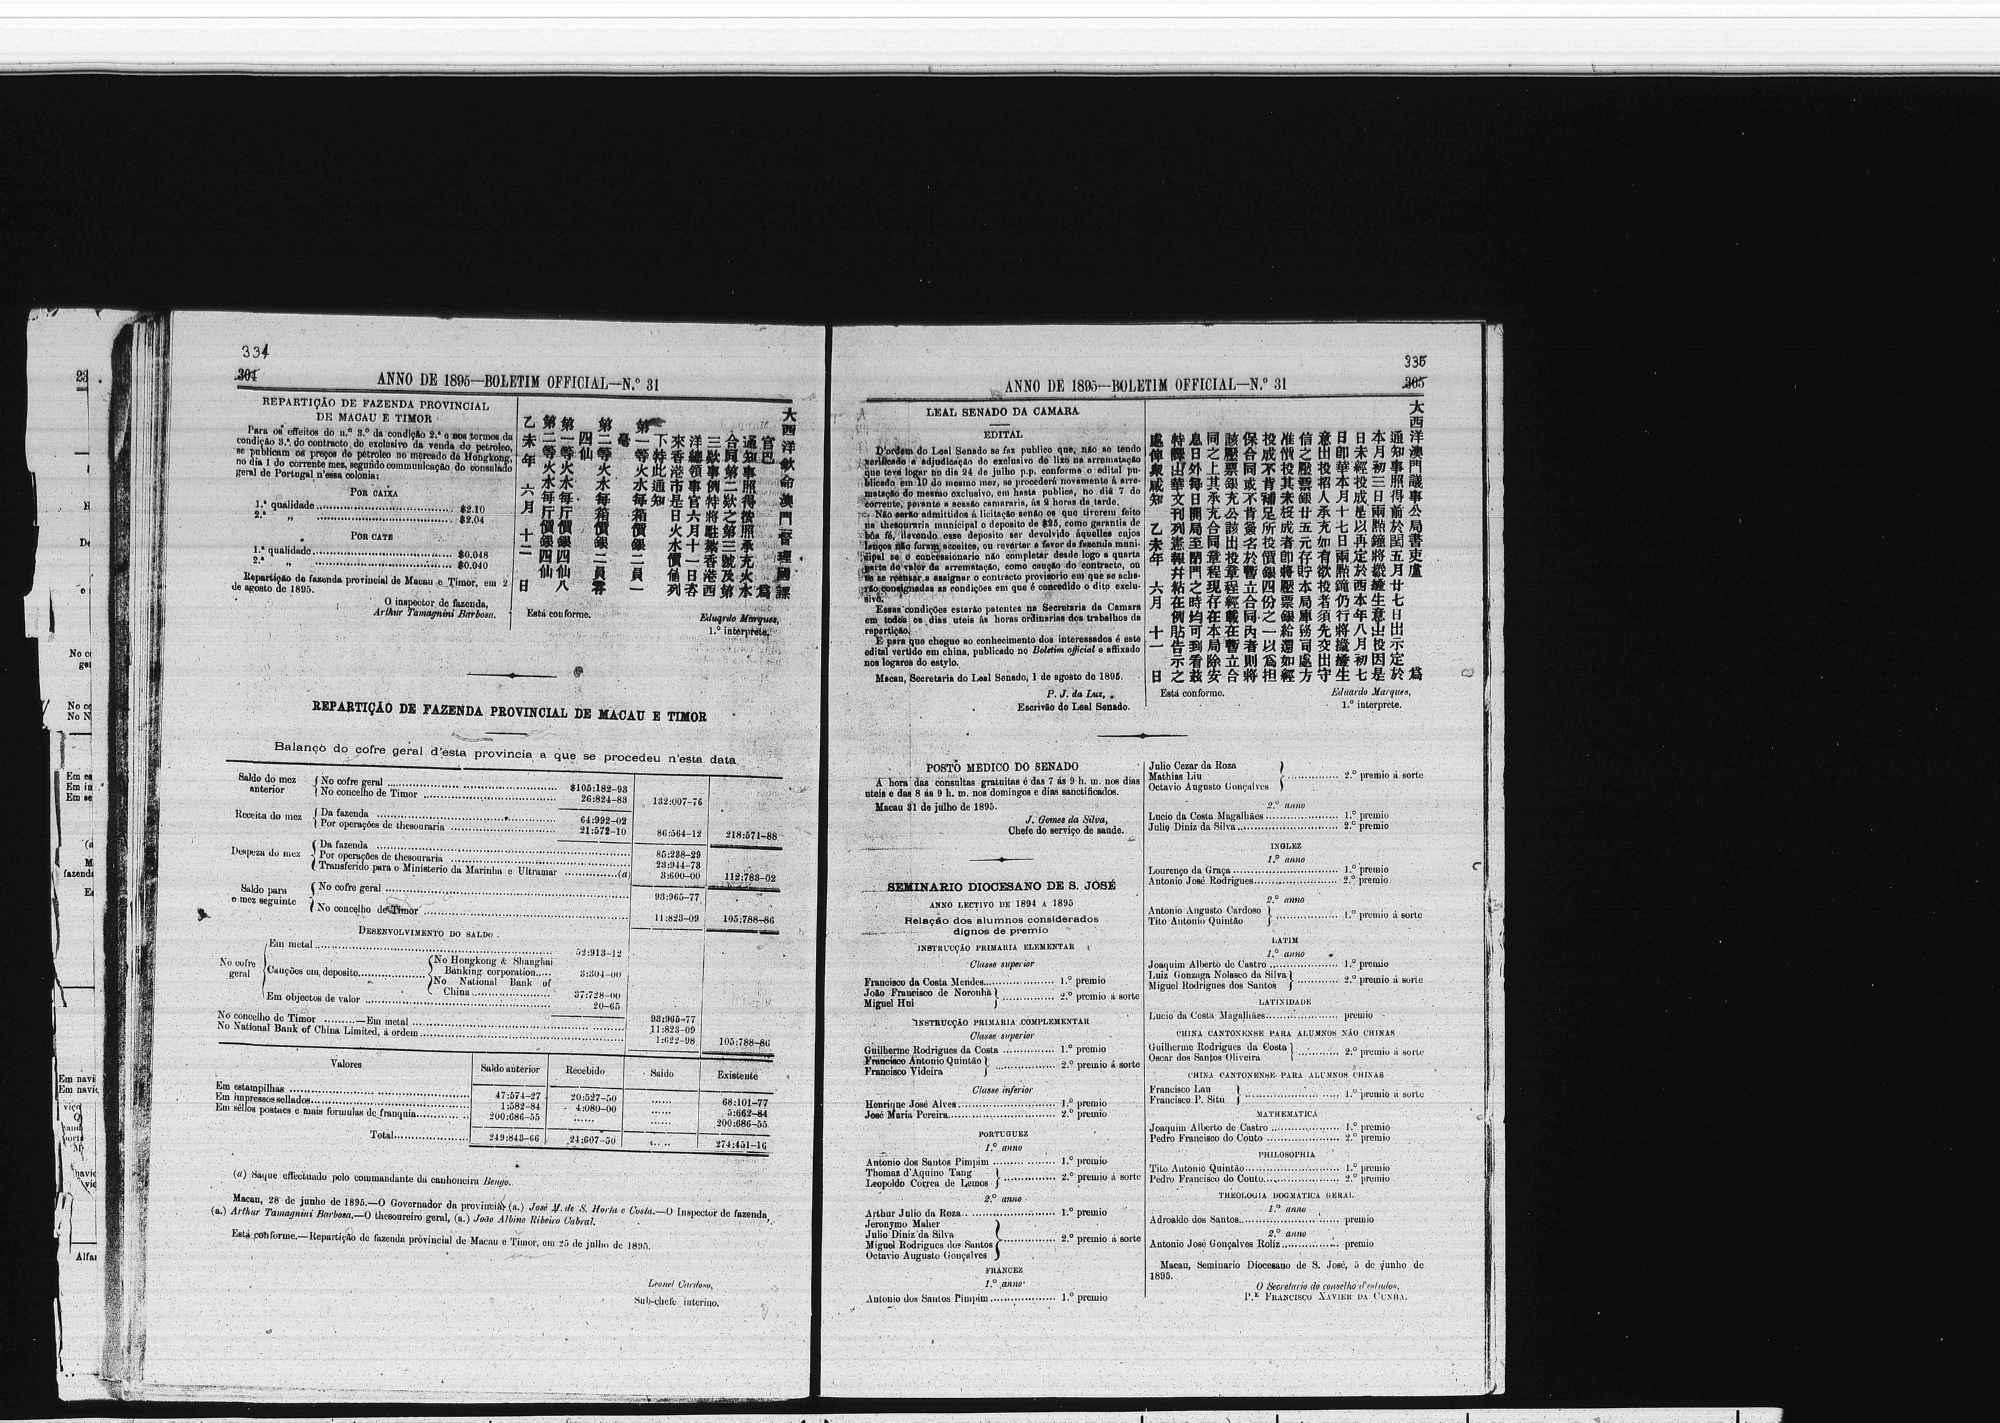 334
304
ANNO DE 1895—BOLETIM OFFICIAL—N.º 31
REPARTIÇÃO DE FAZENDA PROVINCIAL
DE MACAU E TIMOR
Para os effeitos do n.º 3.º da condição 2.ª e nos termos da
condição 3.ª do contracto do exclusivo da venda do petroleo,
se publicam os preços do petroleo no mercado de Hongkong,
no dia 1 do corrente mez, segundo communicação do consulado
geral de Portugal n'essa colonia:
POR CAIXA
1.ª qualidade ........ $2.10
2.ª „ ........ $2.04
POR CATE
1.ª qualidade ........ $0.048
2.ª „ ........ $0.040
Repartição de fazenda provincial de Macau e Timor, em 2
de agosto de 1895.
O inspector de fazenda,
Arthur Tamagnini Barbosa.
大西洋欽命澳門督理國課
官巴 為
通知事照得按照承充火水
合同第二欵之第三號及第
三欵事例特將駐紮香港西
洋總領事官六月十一日咨
來香港市是日火水價值列
下特此通知
第一等火水每箱價銀二員一
毫
第二等火水每箱價銀二員零
四仙
第一等火水每斤價銀四仙八
第二等火水每斤價銀四仙
乙未年 六月 十二 日
Está conforme.
Eduardo Marques,
1.º interprete.
REPARTIÇÃO DE FAZENDA PROVINCIAL DE MACAU E TIMOR
Balanço do cofre geral d'esta provincia a que se procedeu n'esta data
Saldo do mez anterior { No cofre geral ........ $105:182-93
No concelho de Timor ........ 26:824-83 132:007-76
Receita do mez { Da fazenda ........ 64:992-02
Por operações de thesouraria ........ 21:572-10 86:564-12 218:571-88
Despeza do mez { Da fazenda ........ 85:238-29
Por operações de thesouraria ........ 23:944-73
Transferido para o Ministerio da Marinha e Ultramar ........(a) 3:600-00 112:783-02
Saldo para o mez seguinte { No cofre geral ........ 93:965-77
No concelho de Timor ........ 11:823-09 105:788-86
DESENVOLVIMENTO DO SALDO
No cofre geral { Em metal ........ 52:913-12
Cauções em deposito ........ { No Hongkong & Shanghai
Banking corporation ..... 3:304-00
No National Bank of
China ........ 37:728-00
Em objectos de valor ........ 20-65
93:965-77
No concelho de Timor ........—Em metal ........ 11:823-09
No National Bank of China Limited, á ordem ........ 1:622-98 105:788-86
Valores Saldo anterior Recebido Saído Existente
Em estampilhas ........ 47:574-27 20:527-50 ...... 68:101-77
Em impressos sellados ........ 1:582-84 4:080-00 ...... 5:662-84
Em sellos postaes e mais formulas de franquia ........ 200:686-55 ...... ...... 200:686-55
Total ........ 249:843-66 24:607-50 ...... 274:451-16
(a) Saque effectuado pelo commandante da canhoneira Bengo.
Macau, 28 de junho de 1895.—O Governador da provincia, (a.) José M. de S. Horta e Costa.—O Inspector de fazenda,
(a.) Arthur Tamagnini Barbosa.—O thesoureiro geral, (a.) João Albino Ribeiro Cabral.
Está conforme.—Repartição de fazenda provincial de Macau e Timor, em 25 de julho de 1895.
Leonel Cardoso,
Sub-chefe interino.
335
305
ANNO DE 1895—BOLETIM OFFICIAL—N.º 31
LEAL SENADO DA CAMARA
EDITAL
D'ordem do Leal Senado se faz publico que, não se tendo
verificado a adjudicação do exclusivo do lixo na arrematação
que teve logar no dia 24 de julho p.p. conforme o edital pu-
blicado em 10 do mesmo mez, se procederá novamente á arre-
matação do mesmo exclusivo, em hasta publica, no dia 7 do
corrente, perante a sessão camararia, ás 2 horas da tarde.
Não serão admittidos á licitação senão os que tiverem feito
na thesouraria municipal o deposito de $25, como garantia de
bôa fé, devendo esse deposito ser devolvido áquelles cujos
lanços não foram acceites, ou reverter a favor da fazenda muni-
cipal se o concessionario não completar desde logo a quarta
parte do valor da arrematação, como caução do contracto, ou
se se recusar a assignar o contracto provisorio em que se acha-
rão consignadas as condições em que é concedido o dito exclu-
sivo.
Essas condições estarão patentes na Secretaria da Camara
em todos os dias uteis ás horas ordinarias dos trabalhos da
repartição.
E para que chegue ao conhecimento dos interessados é este
edital vertido em china, publicado no Boletim official e affixado
nos logares do estylo.
Macau, Secretaria do Leal Senado, 1 de agosto de 1895.
P. J. da Luz,
Escrivão do Leal Senado.
大西洋澳門議事公局書吏盧 為
通知事照得前於閏五月廿七日出示定於
本月初三日兩點鐘將 生意出投因是
日未經投成是以再定於西本年八月初七
日即華本月十七日兩點鐘仍行將 生
意出投招人承充如有欲投者須先交出守
信之壓票銀廿五元存貯本局庫務司處方
准價投其未投成者即將壓票銀給還如經
投成不肯補足所投價銀四份之一以為担
保合同或不肯簽名於暫立合同內者則將
該壓票銀充公該出投章程經載在暫立合
同之上其承充合同章程現存在本局除安
息日外每日開局至閉門之時均可到看茲
特譯出華文刊列憲報并粘在例貼告示之
處俾衆咸知 乙未年 六月 十一 日
Está conforme.
Eduardo Marques,
1.º interprete.
POSTO MEDICO DO SENADO
A hora das consultas gratuitas é das 7 ás 9 h. m. nos dias
uteis e das 8 ás 9 h. m. nos domingos e dias sanctificados.
Macau 31 de julho de 1895.
J. Gomes da Silva,
Chefe do serviço de saude.
SEMINARIO DIOCESANO DE S. JOSÉ
ANNO LECTIVO DE 1894 A 1895
Relação dos alumnos considerados
dignos de premio
INSTRUCÇÃO PRIMARIA ELEMENTAR
Classe superior
Francisco da Costa Mendes ........ 1.º premio
João Francisco de Noronha
Miguel Hui } ........ 2.º premio á sorte
INSTRUCÇÃO PRIMARIA COMPLEMENTAR
Classe superior
Guilherme Rodrigues da Costa ........ 1.º premio
Francisco Antonio Quintão
Francisco Videira } ........ 2.º premio á sorte
Classe inferior
Henrique José Alves ........ 1.º premio
José Maria Pereira ........ 2.º premio
PORTUGUEZ
1.º anno
Antonio dos Santos Pimpim ........ 1.º premio
Thomas d'Aquino Tang
Leopoldo Correa de Lemos } ........ 2.º premio á sorte
2.º anno
Arthur Julio da Roza ........ 1.º premio
Jeronymo Maher
Julio Diniz da Silva
Miguel Rodrigues dos Santos
Octavio Augusto Gonçalves } ........ 2.º premio á sorte
FRANCEZ
1.º anno
Antonio dos Santos Pimpim ........ 1.º premio
Julio Cezar da Roza
Mathias Liu
Octavio Augusto Gonçalves } ........ 2.º premio á sorte
2.º anno
Lucio da Costa Magalhães ........ 1.º premio
Julio Diniz da Silva ........ 2.º premio
INGLEZ
1.º anno
Lourenço da Graça ........ 1.º premio
Antonio José Rodrigues ........ 2.º premio
2.º anno
Antonio Augusto Cardoso
Tito Antonio Quintão } ........ 1.º premio á sorte
LATIM
1.º anno
Joaquim Alberto de Castro ........ 1.º premio
Luiz Gonzaga Nolasco da Silva
Miguel Rodrigues dos Santos } ........ 2.º premio á sorte
LATINIDADE
Lucio da Costa Magalhães ........ premio
CHINA CANTONENSE PARA ALUMNOS NÃO CHINAS
Guilherme Rodrigues da Costa
Oscar dos Santos Oliveira } ........ 2.º premio á sorte
CHINA CANTONENSE PARA ALUMNOS CHINAS
Francisco Lau
Francisco P. Situ } ........ 1.º premio á sorte
MATHEMATICA
Joaquim Alberto de Castro ........ 1.º premio
Pedro Francisco do Couto ........ 2.º premio
PHILOSOPHIA
Tito Antonio Quintão ........ 1.º premio
Pedro Francisco do Couto ........ 2.º premio
THEOLOGIA DOGMATICA GERAL
1.º anno
Adroaldo dos Santos ........ premio
2.º anno
Antonio José Gonçalves Roliz ........ premio
Macau, Seminario Diocesano de S. José, 5 de junho de
1895.
O Secretario do conselho d'estudos,
P.e FRANCISCO XAVIER DA CUNHA.